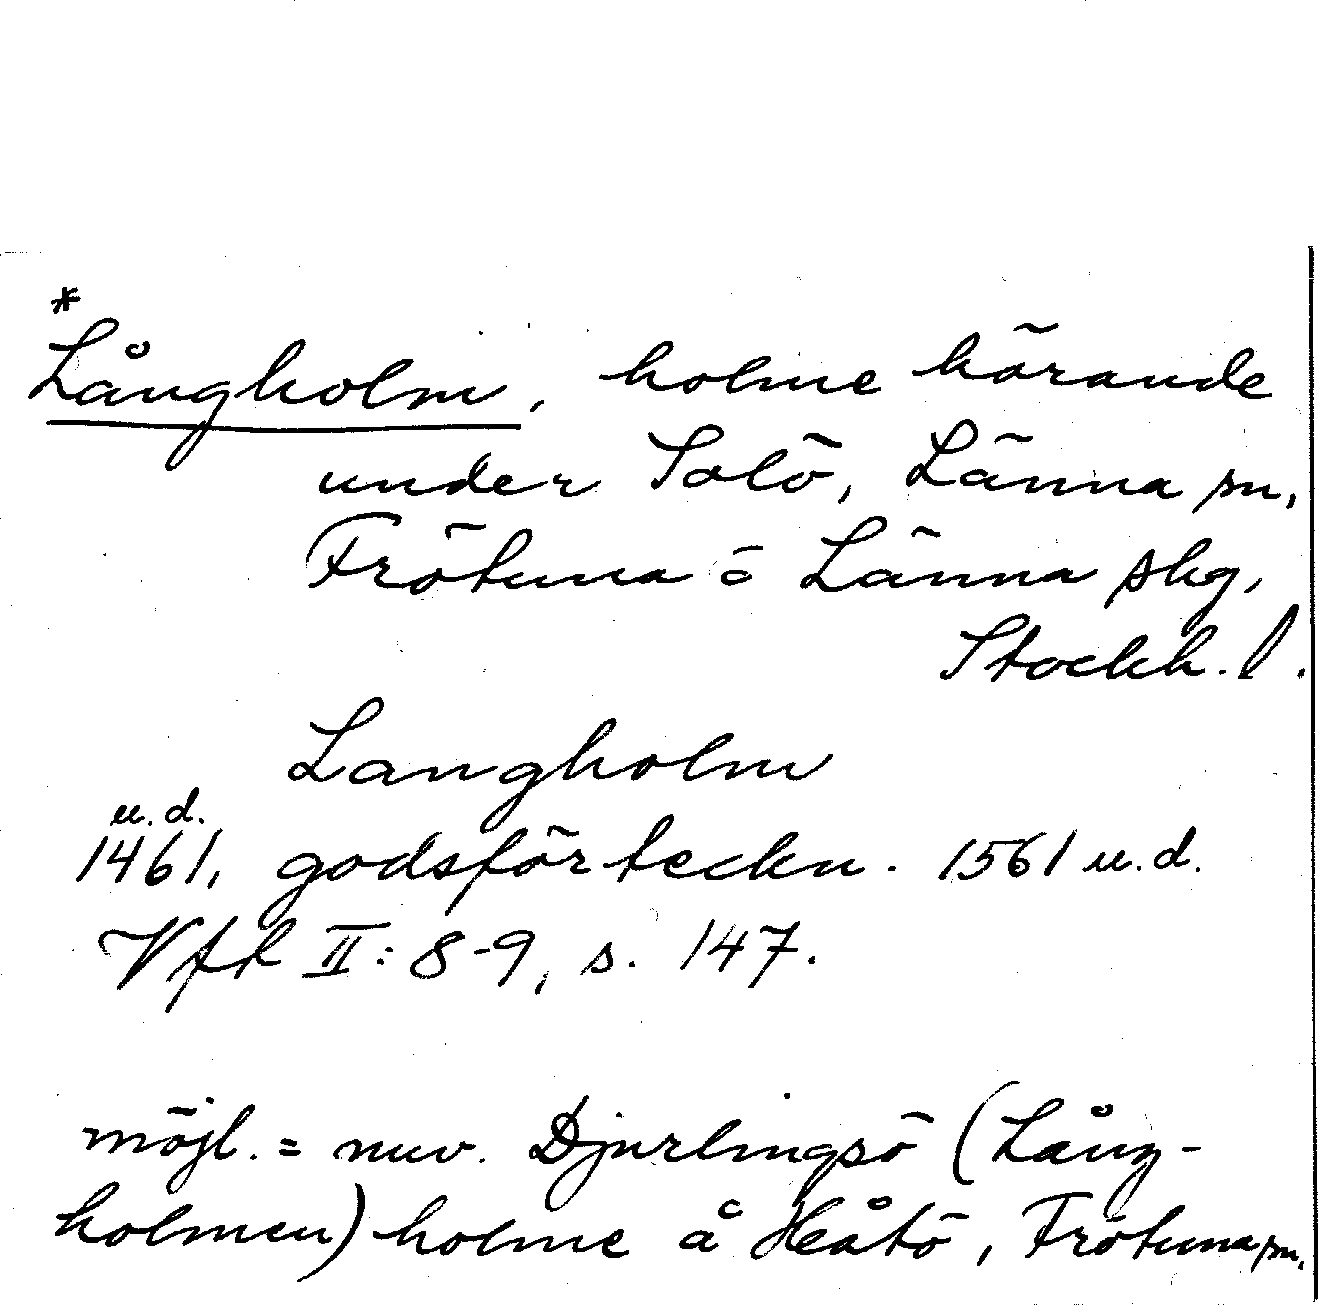 *
Långholm, holme hörande
under Solö, Länna sn,
Frötuna o Länna skg,
Stockh. l.
Langholm
u.d.
1461, godsförteckn. 1561 u.d.
Vfk II: 8-9, s. 147.
möjl. = nuv. Djurlingsö (Lång-
holmen) holme å Håtö, Frötuna sn.